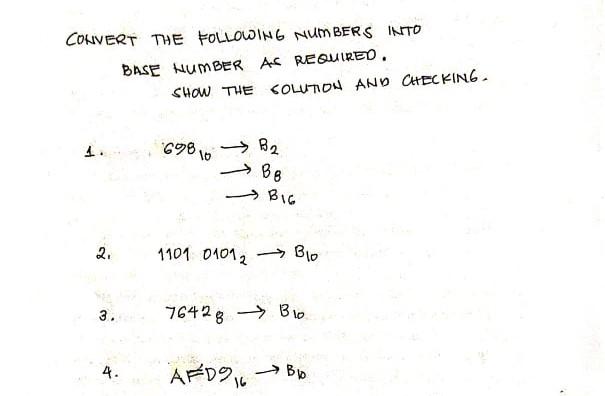 CONVERT THE FOLLOWING NUMBERS INTO
BASE NUMBER AS REQUIRED.
SHOW THE SOLUTION AND CHECKING.
1. 698₁₀ → B₂
→ B₈
→ B₁₆
2. 1101 0101₂ → B₁₀
3. 7642₈ → B₁₀
4. AFD9₁₆ → B₁₀